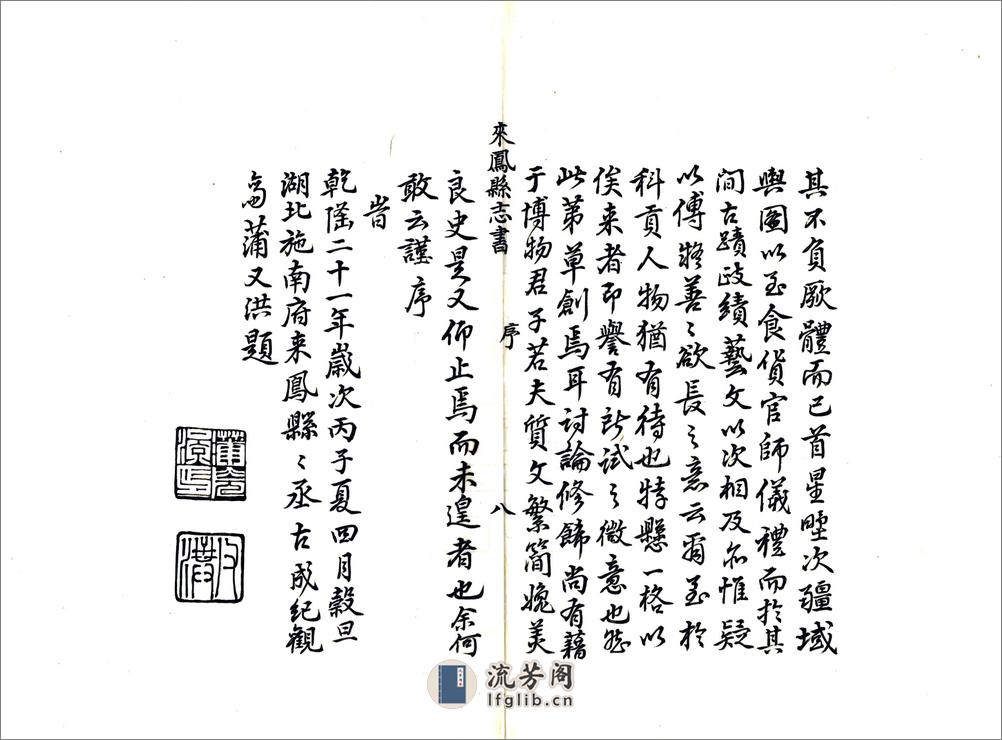 其不負厥體而已首星野次疆域
輿圖以至食貨官師儀禮而於其
間古蹟政績藝文以次相及亦惟疑
以傳將善〻欲長之意云爾至於
科貢人物猶有待也特懸一格以
俟来者即譽有所試之微意也然
此第草創焉耳討論修飾尚有藉
于博物君子若夫質文繁簡媲美
來鳳縣志書 序 八
良史是又仰止焉而未遑者也余何
敢云謹序
旹
乾隆二十一年嵗次丙子夏四月穀旦
湖北施南府来鳳縣〻丞古成紀觀
蒲又洪題
流芳阁
lfglib.cn